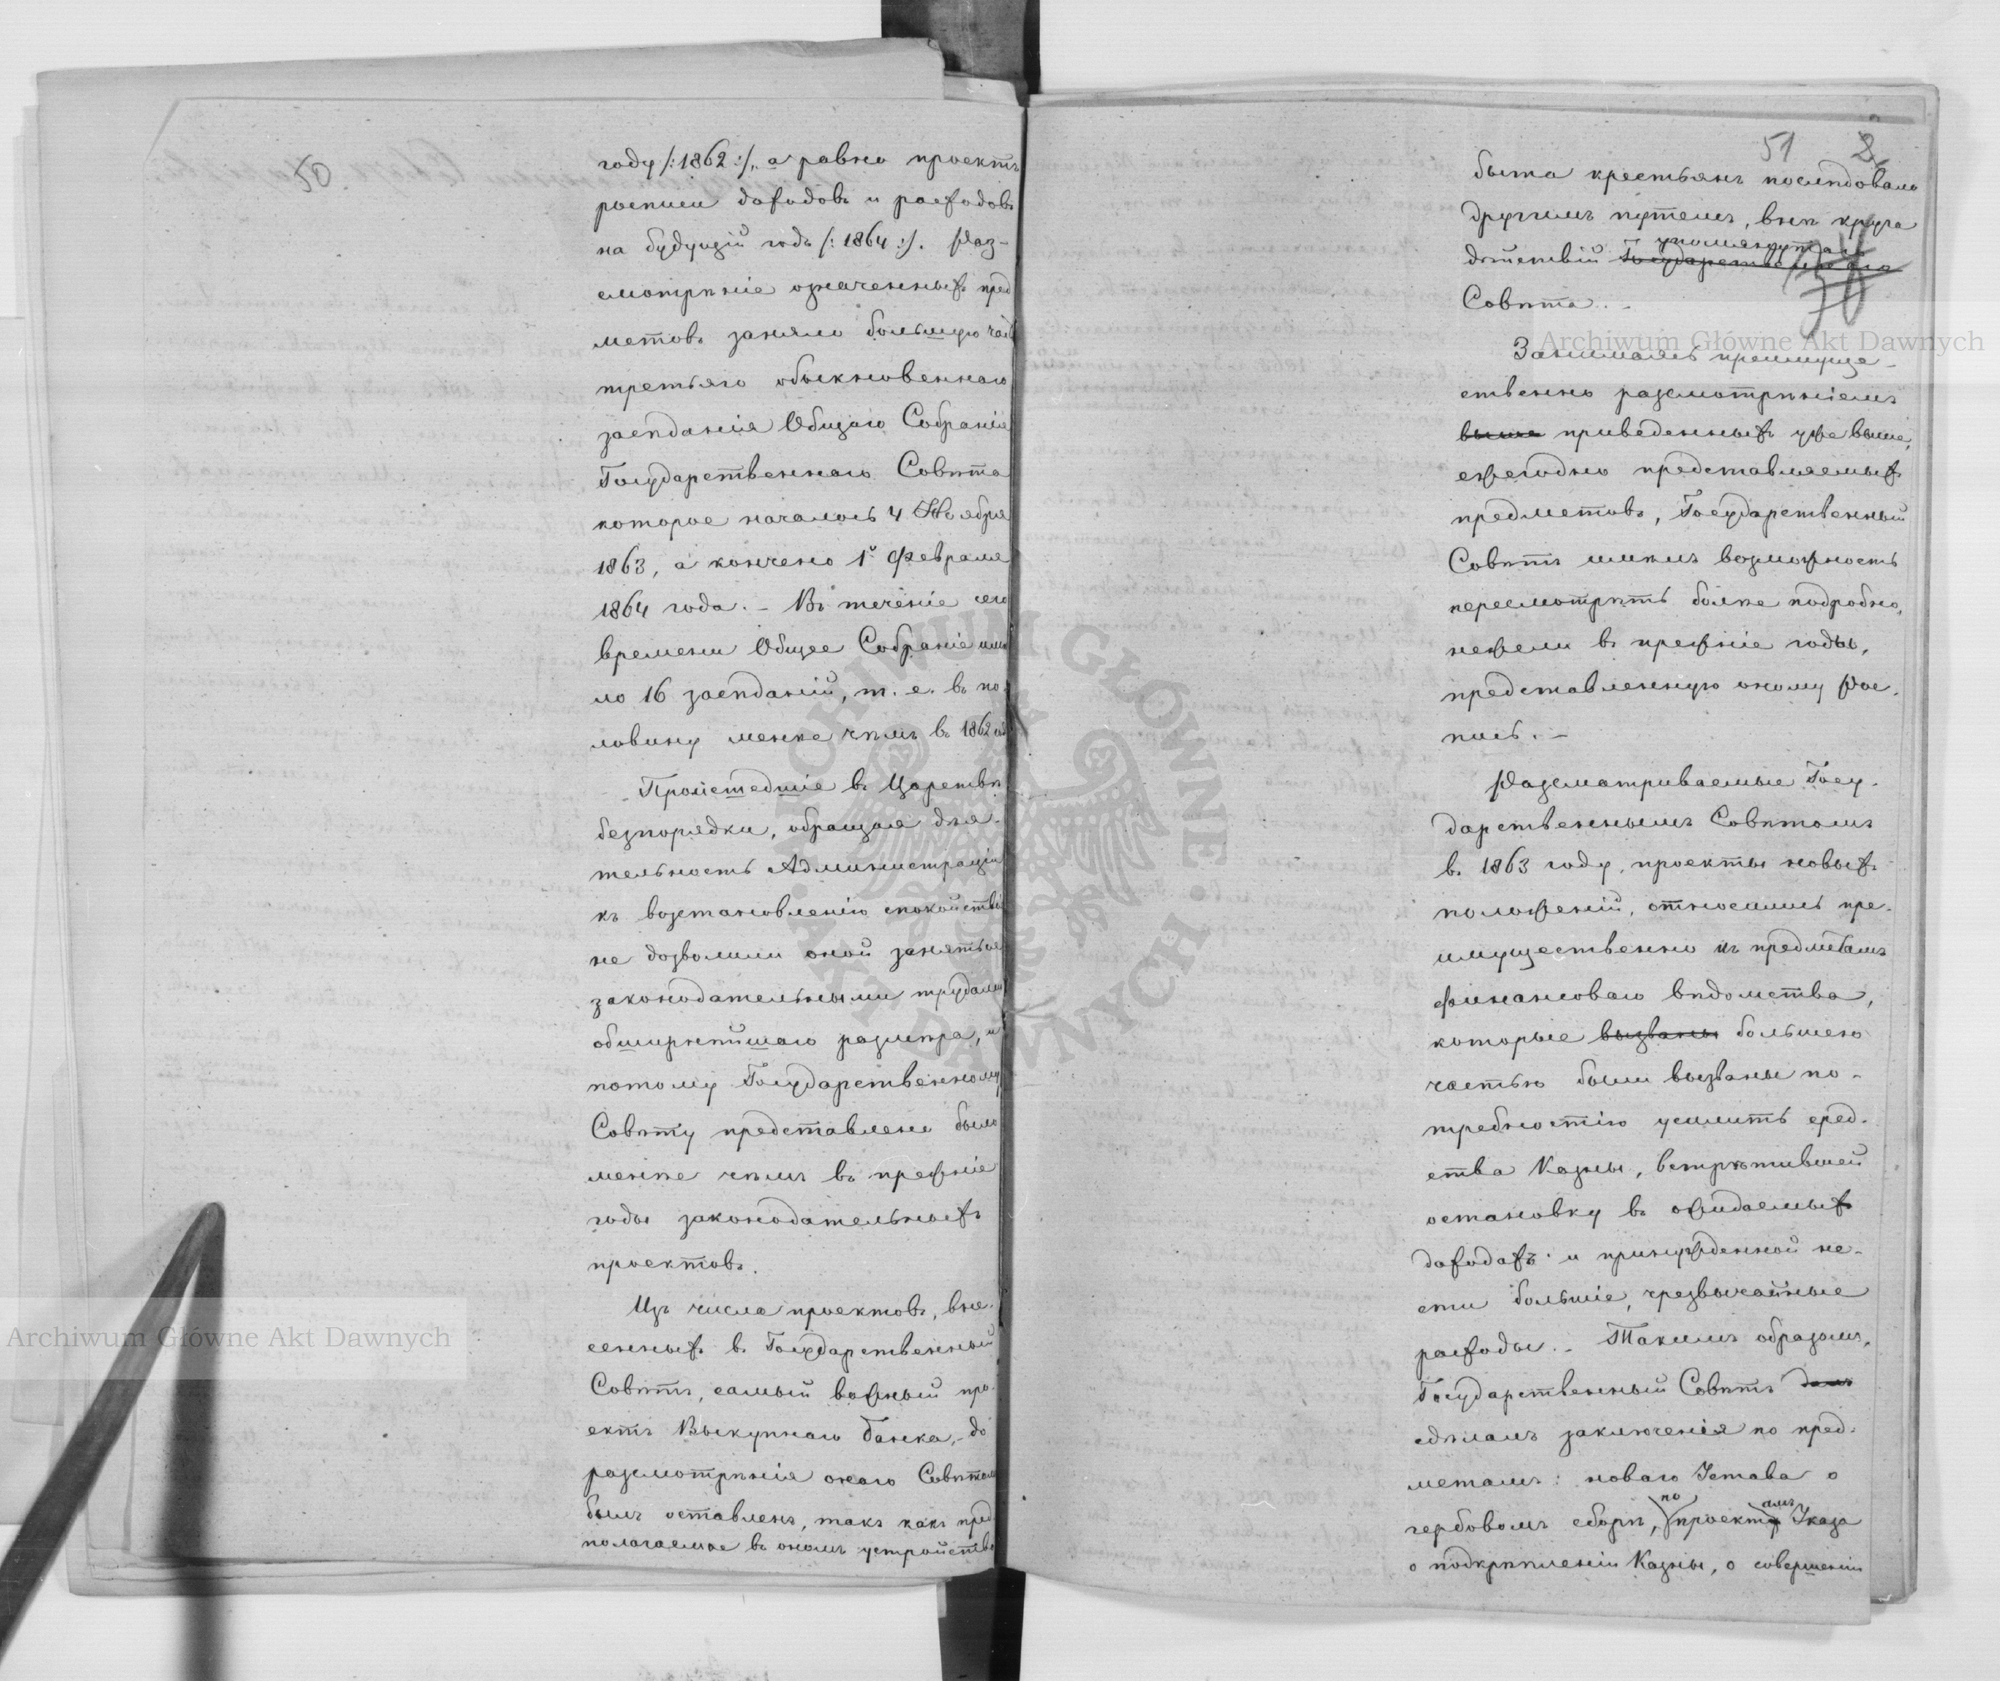 50
году /:1862:/, а равно проектъ
росписи доходовъ и расходовъ
на будущій годъ /:1864:/. Раз-
смотрѣніе означенныхъ пред
метовъ заняло большую часть
третьяго обыкновеннаго
засѣданія Общаго Собранія
Государственнаго Совѣта
которое началось 4 Ноября
1863, а кончено 1го Февраля
1864 года. – Въ теченіе сего
времени Общее Собраніе имѣ
ло 16 засѣданій, т. е. въ по
ловину менѣе чѣмъ въ 1862
Происшедшіе въ Царствѣ
безпорядки, обращая дѣя-
тельность Администраціи
къ возстановленію спокойствія
не дозволили оной заняться
законодательными трудами
обширнѣйшаго размѣра, и
потому Государственному
Совѣту представлено было
менѣе чѣмъ въ прежніе
годы законодательныхъ
проектовъ.
Изъ числа проектовъ, вне-
сенныхъ въ Государственный
Совѣтъ, самый важный про-
ектъ Выкупнаго Банка, – до
разсмотрѣнія онаго Совѣтомъ
былъ оставленъ, такъ какъ пред
полагаемое въ ономъ устройство
51
быта крестьянъ послѣдовало
другимъ путемъ, внѣ круга
упомянутаго
дѣйствій Государственнаго
Совѣта. –
Занимаясь преимуще-
ственно разсмотрѣніемъ
выше приведенныхъ уже выше,
ежегодно представляемыхъ
предметовъ, Государственный
Совѣтъ имѣлъ возможность
пересмотрѣть болѣе подробно,
нежели въ прежніе годы,
представленную оному Рос-
пись. –
Разсматриваемые Госу-
дарственнымъ Совѣтомъ
въ 1863 году, проекты новыхъ
положеній, относились пре-
имущественно къ предметамъ
финансоваго вѣдомства,
которые вызваны большею
частью были вызваны по-
требностію усилить сред-
ства Казны, встрѣтившей
остановку въ ожидаемыхъ
доходахъ и принужденной не-
сти большіе, чрезвычайные
расходы. – Такимъ образомъ,
Государственный Совѣтъ далъ
сдѣлалъ заключенія по пред-
метамъ: новаго Устава о
по амъ
гербовомъ сборѣ, проекту Указа
о подкрѣпленіи Казны, о совершеніи
Archiwum Główne Akt Dawnych
Archiwum Główne Akt Dawnych
ARCHIWUM GŁÓWNE AKT DAWNYCH